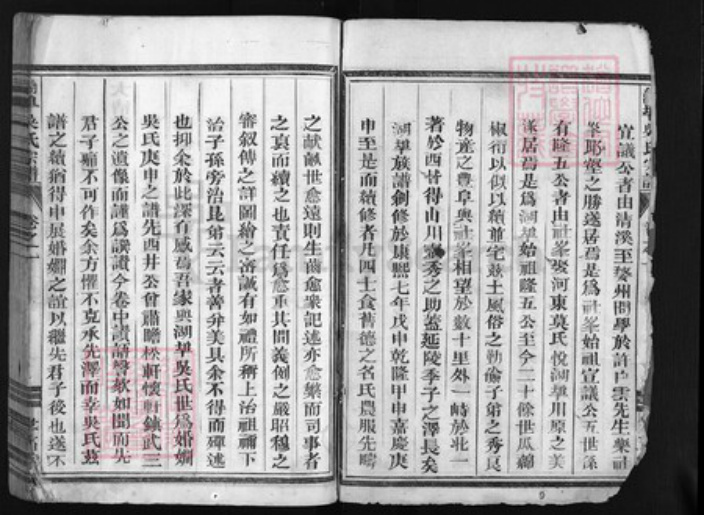 宣議公者由清溪至婺州問學於許白雲先生樂社
峯耶壑之勝遂居焉是為社峯始祖宣議公五世孫
有隆五公者由社峯娶河東莫氏悅湖峯川原之美
遂居焉是為湖峯始祖隆五公至今二十餘世瓜緜
椒衍以似以續並宅茲土風俗之勤儉子弟之秀良
物產之豐阜與社峯相望於數十里外一峙於北一
著於西皆得山川靈秀之助蓋延陵季子之澤長矣
湖峯族譜創修於康熙七年戊申乾隆甲申嘉慶庚
申至是而續修者凡四士食舊德之名氏農服先疇
之畎畝世愈遠則生齒愈衆記述亦愈繁而司事者
之裒而續之也責任爲愈重其間義例之嚴昭穆之
審叙傳之詳圖繪之審誠有如禮所稱上治祖禰下
治子孫旁治昆弟云云者善弁美具余不得而殫述
也抑余於此深有感焉吾家與湖峯吳氏世爲婚姻
吳氏庚申之譜先西井公曾肅瞻松軒懷軒鎮武三
公之遺像而謹爲譔讚今卷中讚語聲欬如聞而先
君子痛不可作矣余方懼不克承先澤而幸吳氏茲
譜之續猶得申展婚姻之誼以繼先君子後也遂不
吳氏宗譜
卷之一